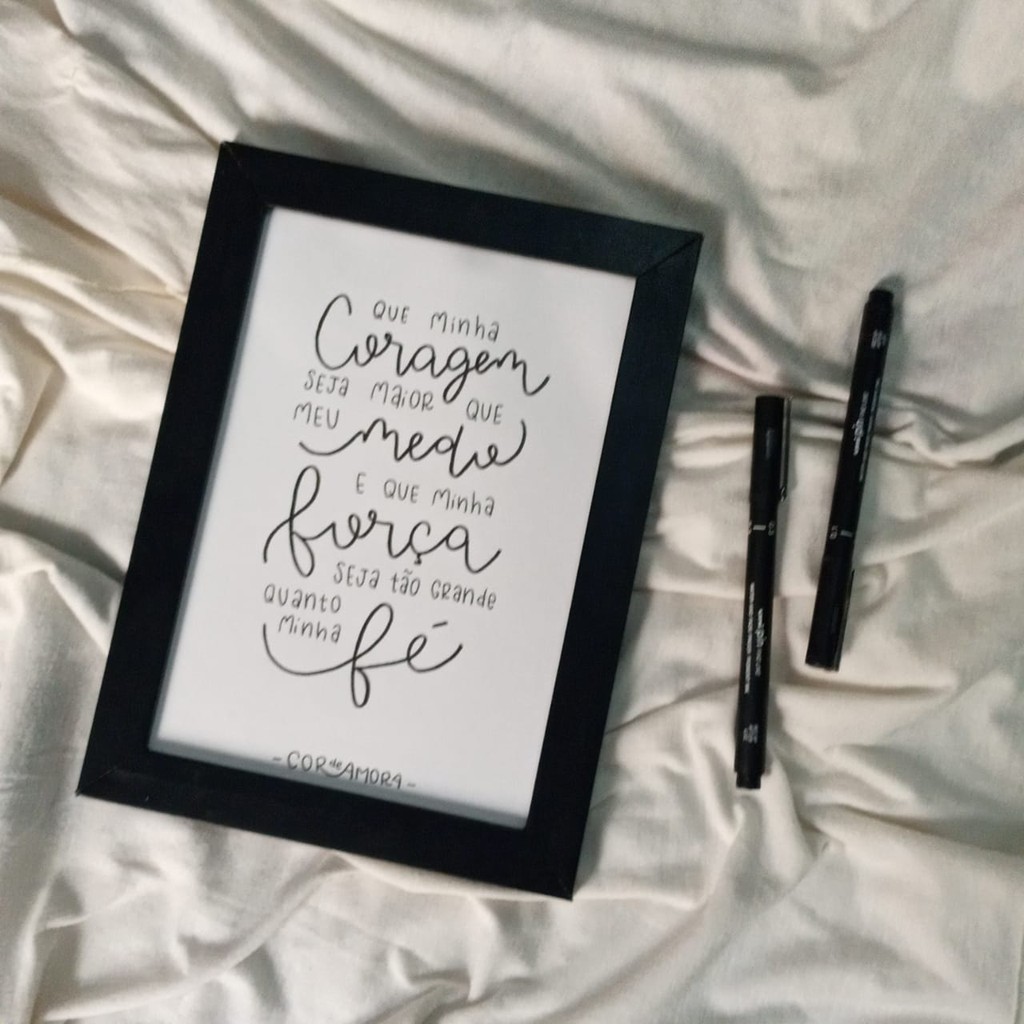 QUE MINHA
Coragem
SEJA MAIOR QUE
MEU medo
E QUE MINHA
força
SEJA TÃO GRANDE
QUANTO
MINHA fé
- COR de AMORA -